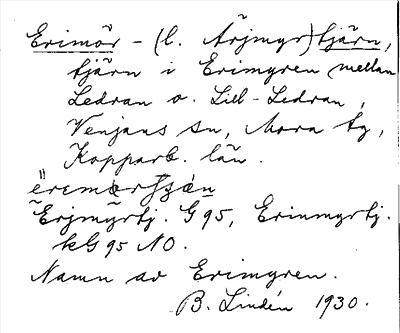 Erimör - (l. Ärjmyr) tjärn,
tjärn i Erimyren mellan
Ledran o. Lill-Ledran,
Venjans sn, Mora tg,
Kopparb. län.
Erjmyrtj. G95, Erinmyrtj.
kG95 NO.
Namn av Erimyren.
B. Lindén 1930.